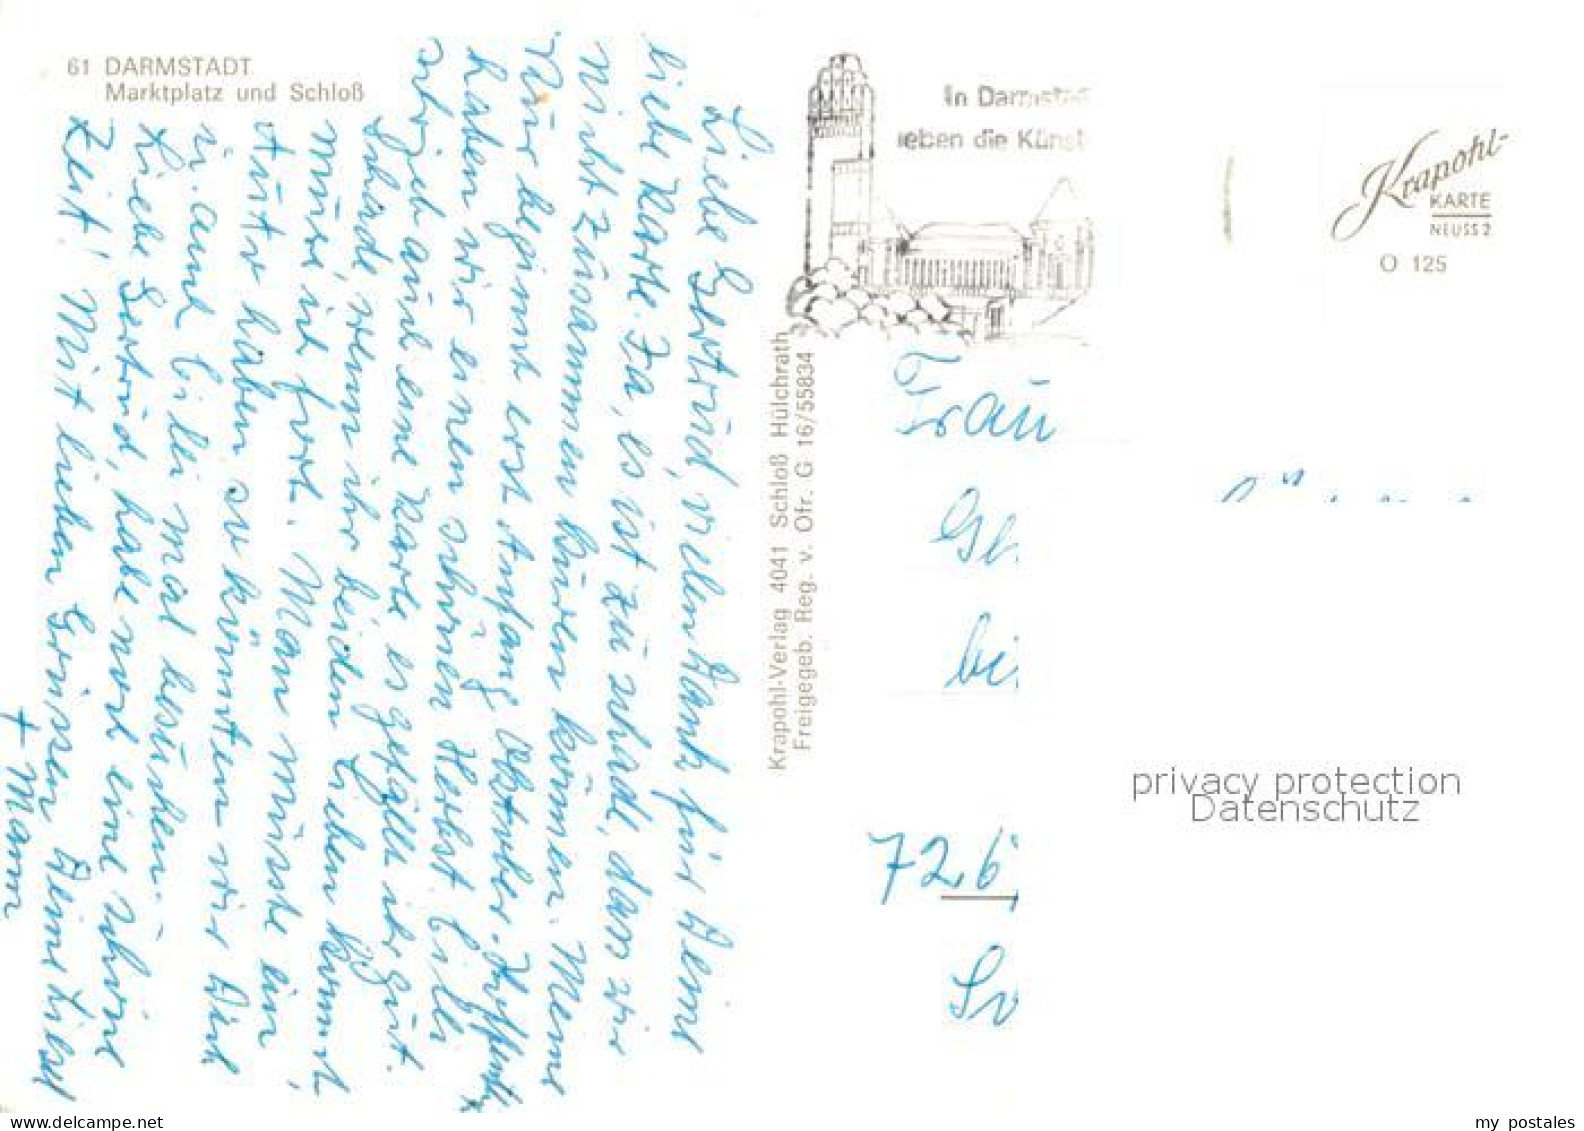 61 DARMSTADT
Marktplatz und Schloß
Liebe Gertrud, vielen Dank für Deine
liebe Karte. Ja, es ist zu schade, dass wir
nicht zusammen kuren können. Meine
Kur beginnt erst Anfang Oktober. Hoffentlich
haben wir einen schönen Herbst. Cilli
schrieb auch eine Karte es gefällt ihr gut.
Schade wenn ihr beiden Lieben kommt,
muss ich fort. Man müsste ein
Auto haben so könnten wir Dich
u. auch Cilli mal besuchen.
Liebe Gertrud, habe noch eine schöne
Zeit! Mit lieben Grüssen Deine Liesel
+ Mann
Krapohl-Verlag 4041 Schloß Hülchrath
Freigegeb. Reg. v. Ofr. G 16/55834
In Darmstadt
leben die Künst
Krapohl-
KARTE
NEUSS 2
O 125
Frau
bei
72,6
privacy protection
Datenschutz
my postales